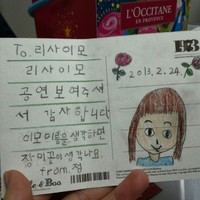 L'OCCITANE
EN PROVENCE
To. 리사이모
리사이모
공연보여주셔
서 감사합니다
이모이름을생각하면
장미꽃이생각나요.
from.정
2013.2.24.